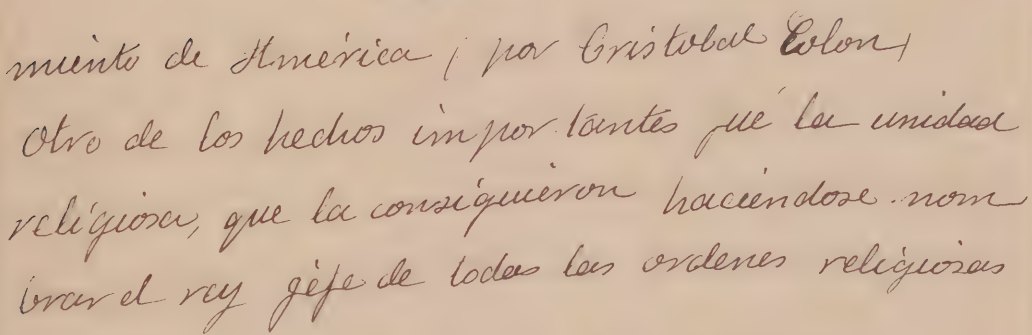 miento de América, por Cristobal Colon,
Otro de los hechos importantes fué la unidad
religiosa, que la consiguieron haciéndose nom
brar el rey géfe de todas las ordenes religiosas